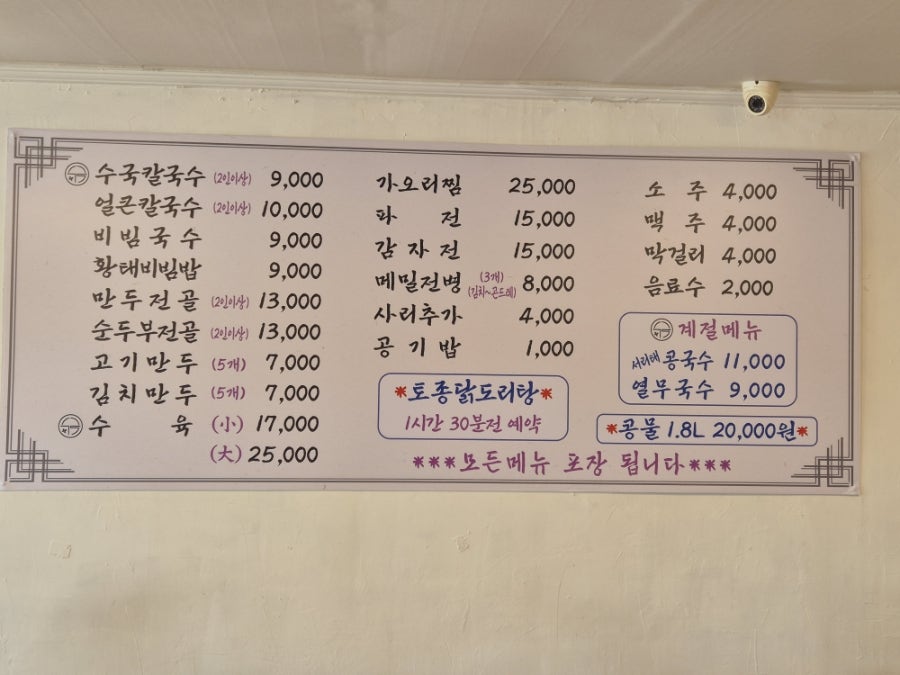 수국칼국수 (2인이상) 9,000
얼큰칼국수 (2인이상) 10,000
비빔국수 9,000
황태비빔밥 9,000
만두전골 (2인이상) 13,000
순두부전골 (2인이상) 13,000
고기만두 (5개) 7,000
김치만두 (5개) 7,000
수육 (小) 17,000
(大) 25,000
가오리찜 25,000
파전 15,000
감자전 15,000
메밀전병 (3개) (김치~곤드레) 8,000
사리추가 4,000
공기밥 1,000
*토종닭도리탕*
1시간 30분전 예약
소주 4,000
맥주 4,000
막걸리 4,000
음료수 2,000
계절메뉴
서리태 콩국수 11,000
열무국수 9,000
*콩물 1.8L 20,000원*
***모든메뉴 포장 됩니다***